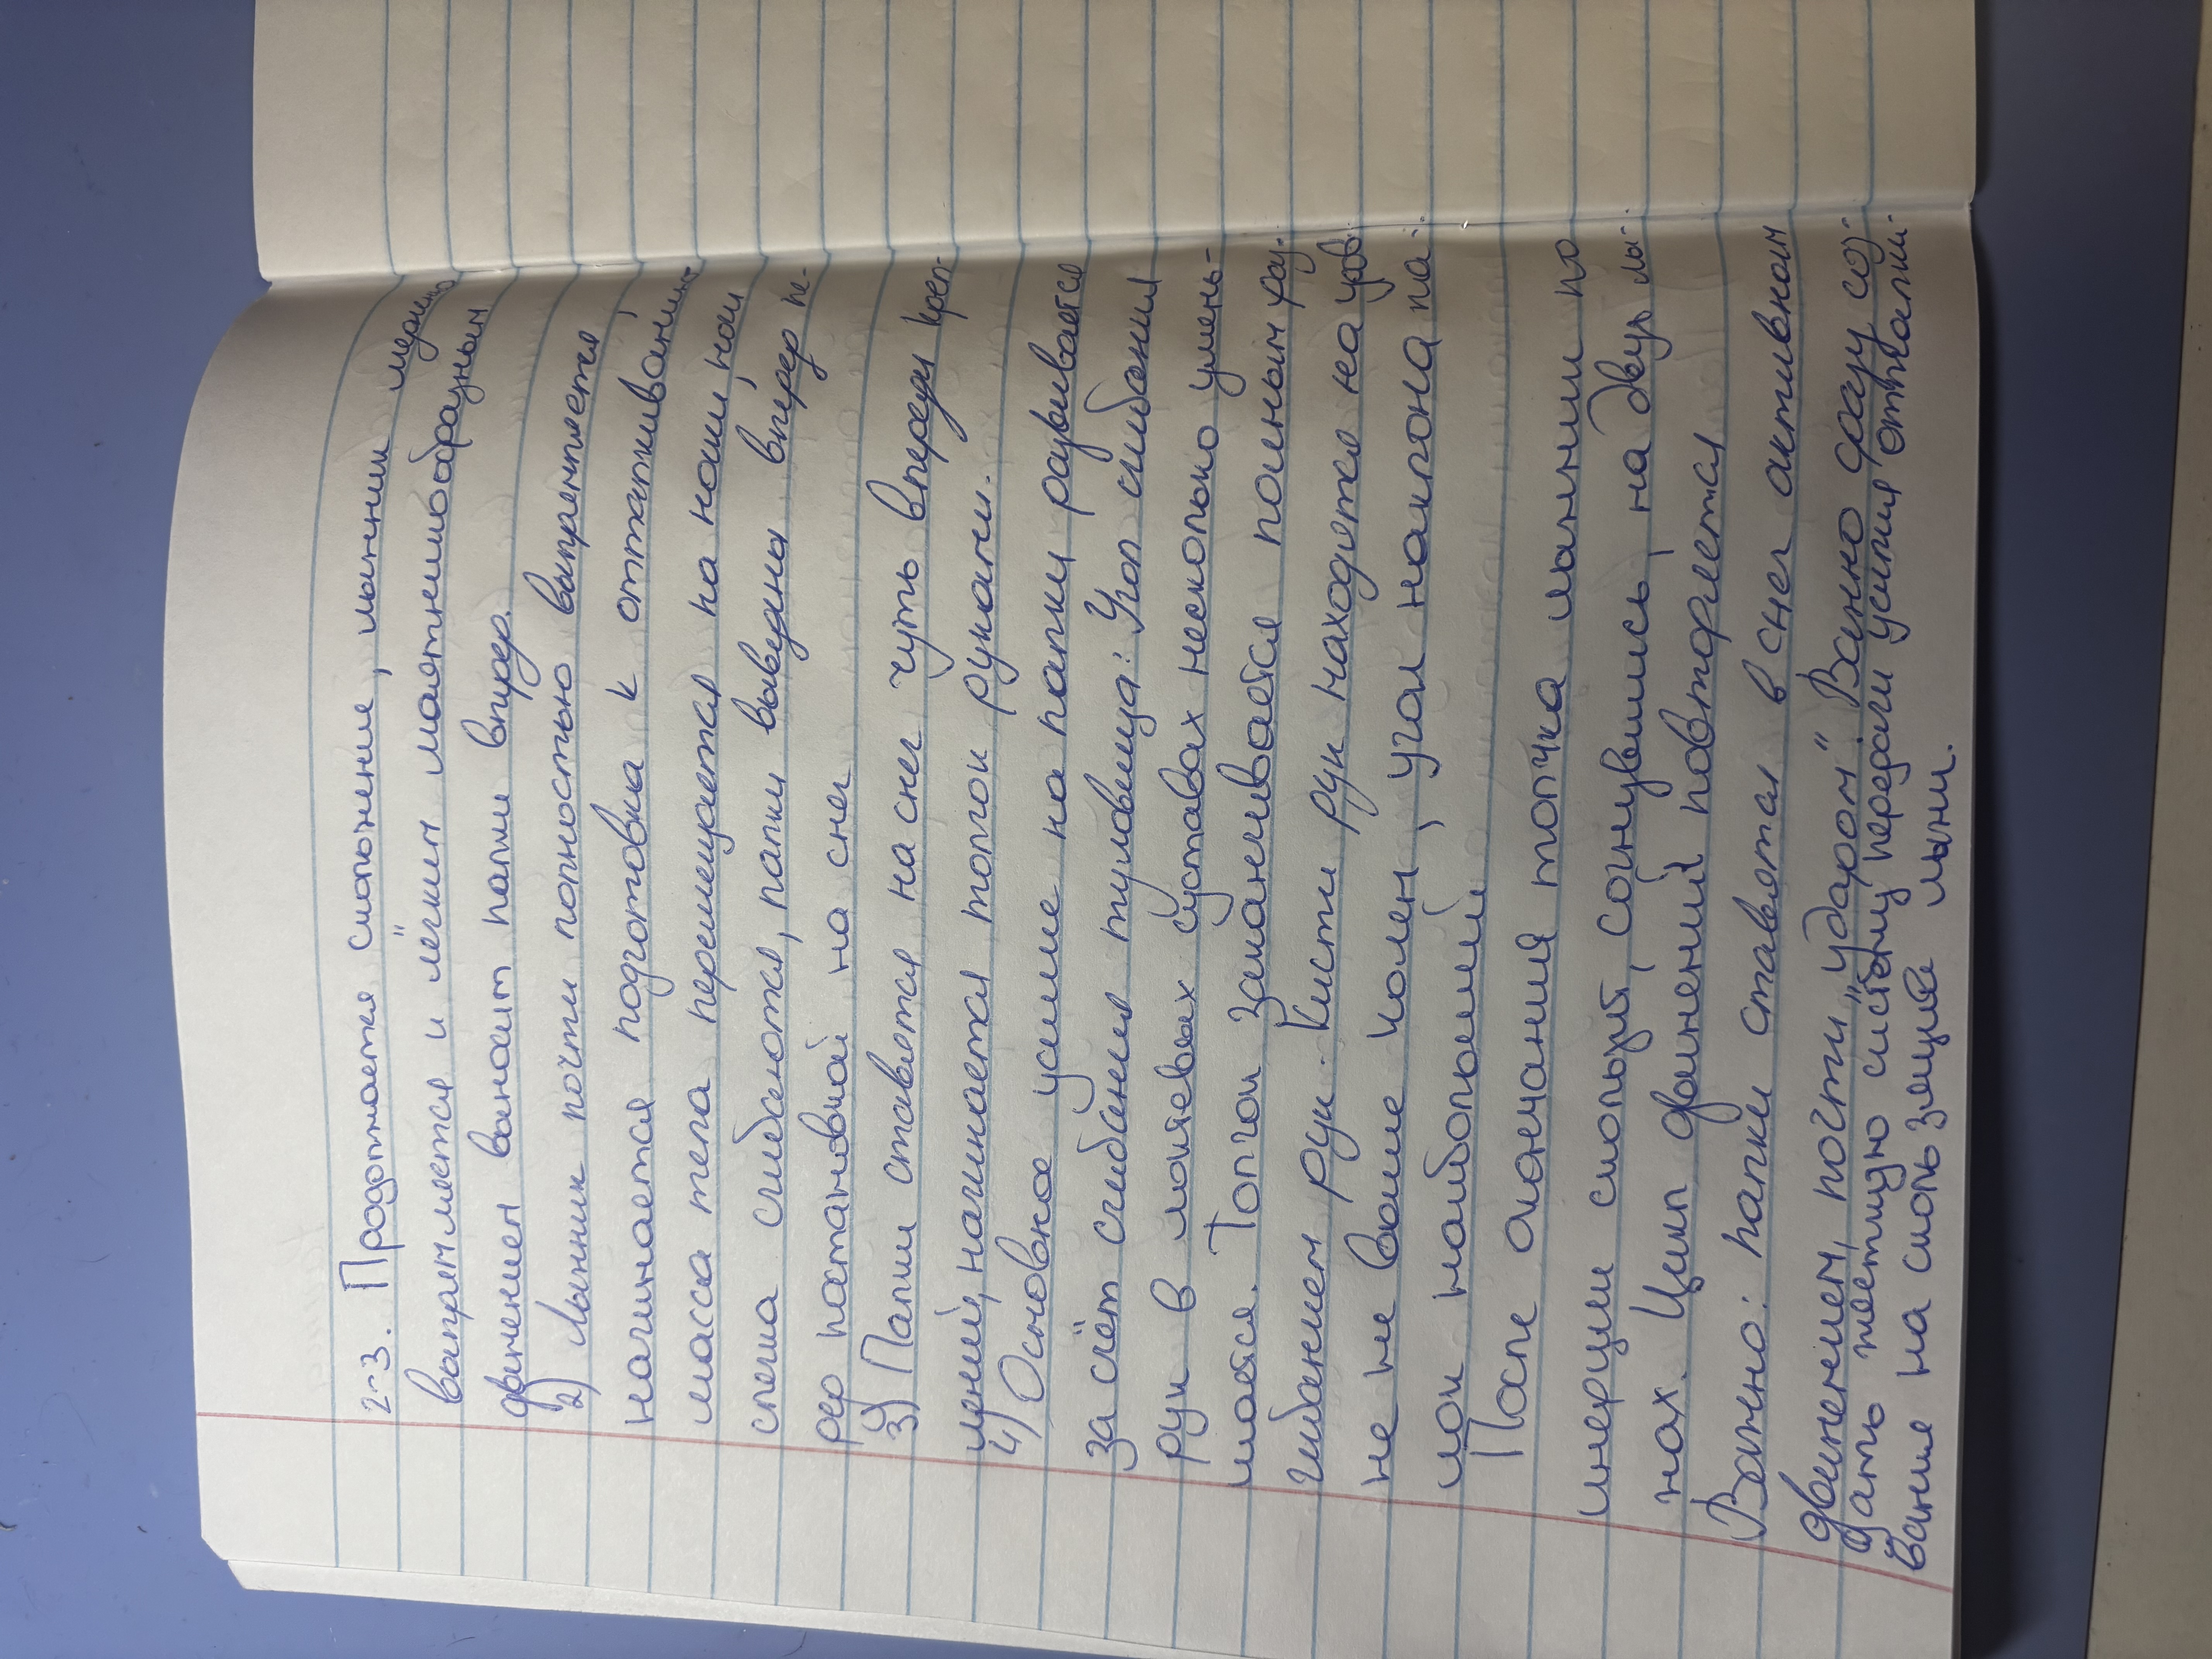 2-3. Продолжается скольжение, лыжник медленно
выпрямляется и лёгким маятникообразным
движением выносит палки вперед.
2) Лыжник почти полностью выпрямляется,
начинается подготовка к отталкиванию,
масса тела перемещается на носки, ноги
слегка сгибаются, палки выведены вперёд пе-
ред постановкой на снег
3) Палки ставятся на снег чуть впереди креп-
лений, начинается толчок руками.
4) Основное усилие на палки развивается
за счёт сгибания туловища. Угол сгибания
рук в локтевых суставах несколько умень-
шается. Толчок заканчивается полным раз-
гибанием рук. Кисти рук находятся на уров-
не не выше колен, угол наклона па-
лок наибольший
После окончания толчка лыжник по
инерции скользит, согнувшись, на двух лы-
жах. Цикл движений повторяется
Важно: палки ставятся в снег активным
движением, почти "ударом". Важно сразу соз-
дать жесткую систему передачи усилия отталки-
вания на скользящие лыжи.